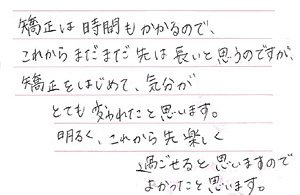 矯正は時間もかかるので、
これからまだまだ先は長いと思うのですが、
矯正をはじめて、気分が
とても変われたと思います。
明るく、これから先楽しく
過ごせると思いますので
よかったと思います。